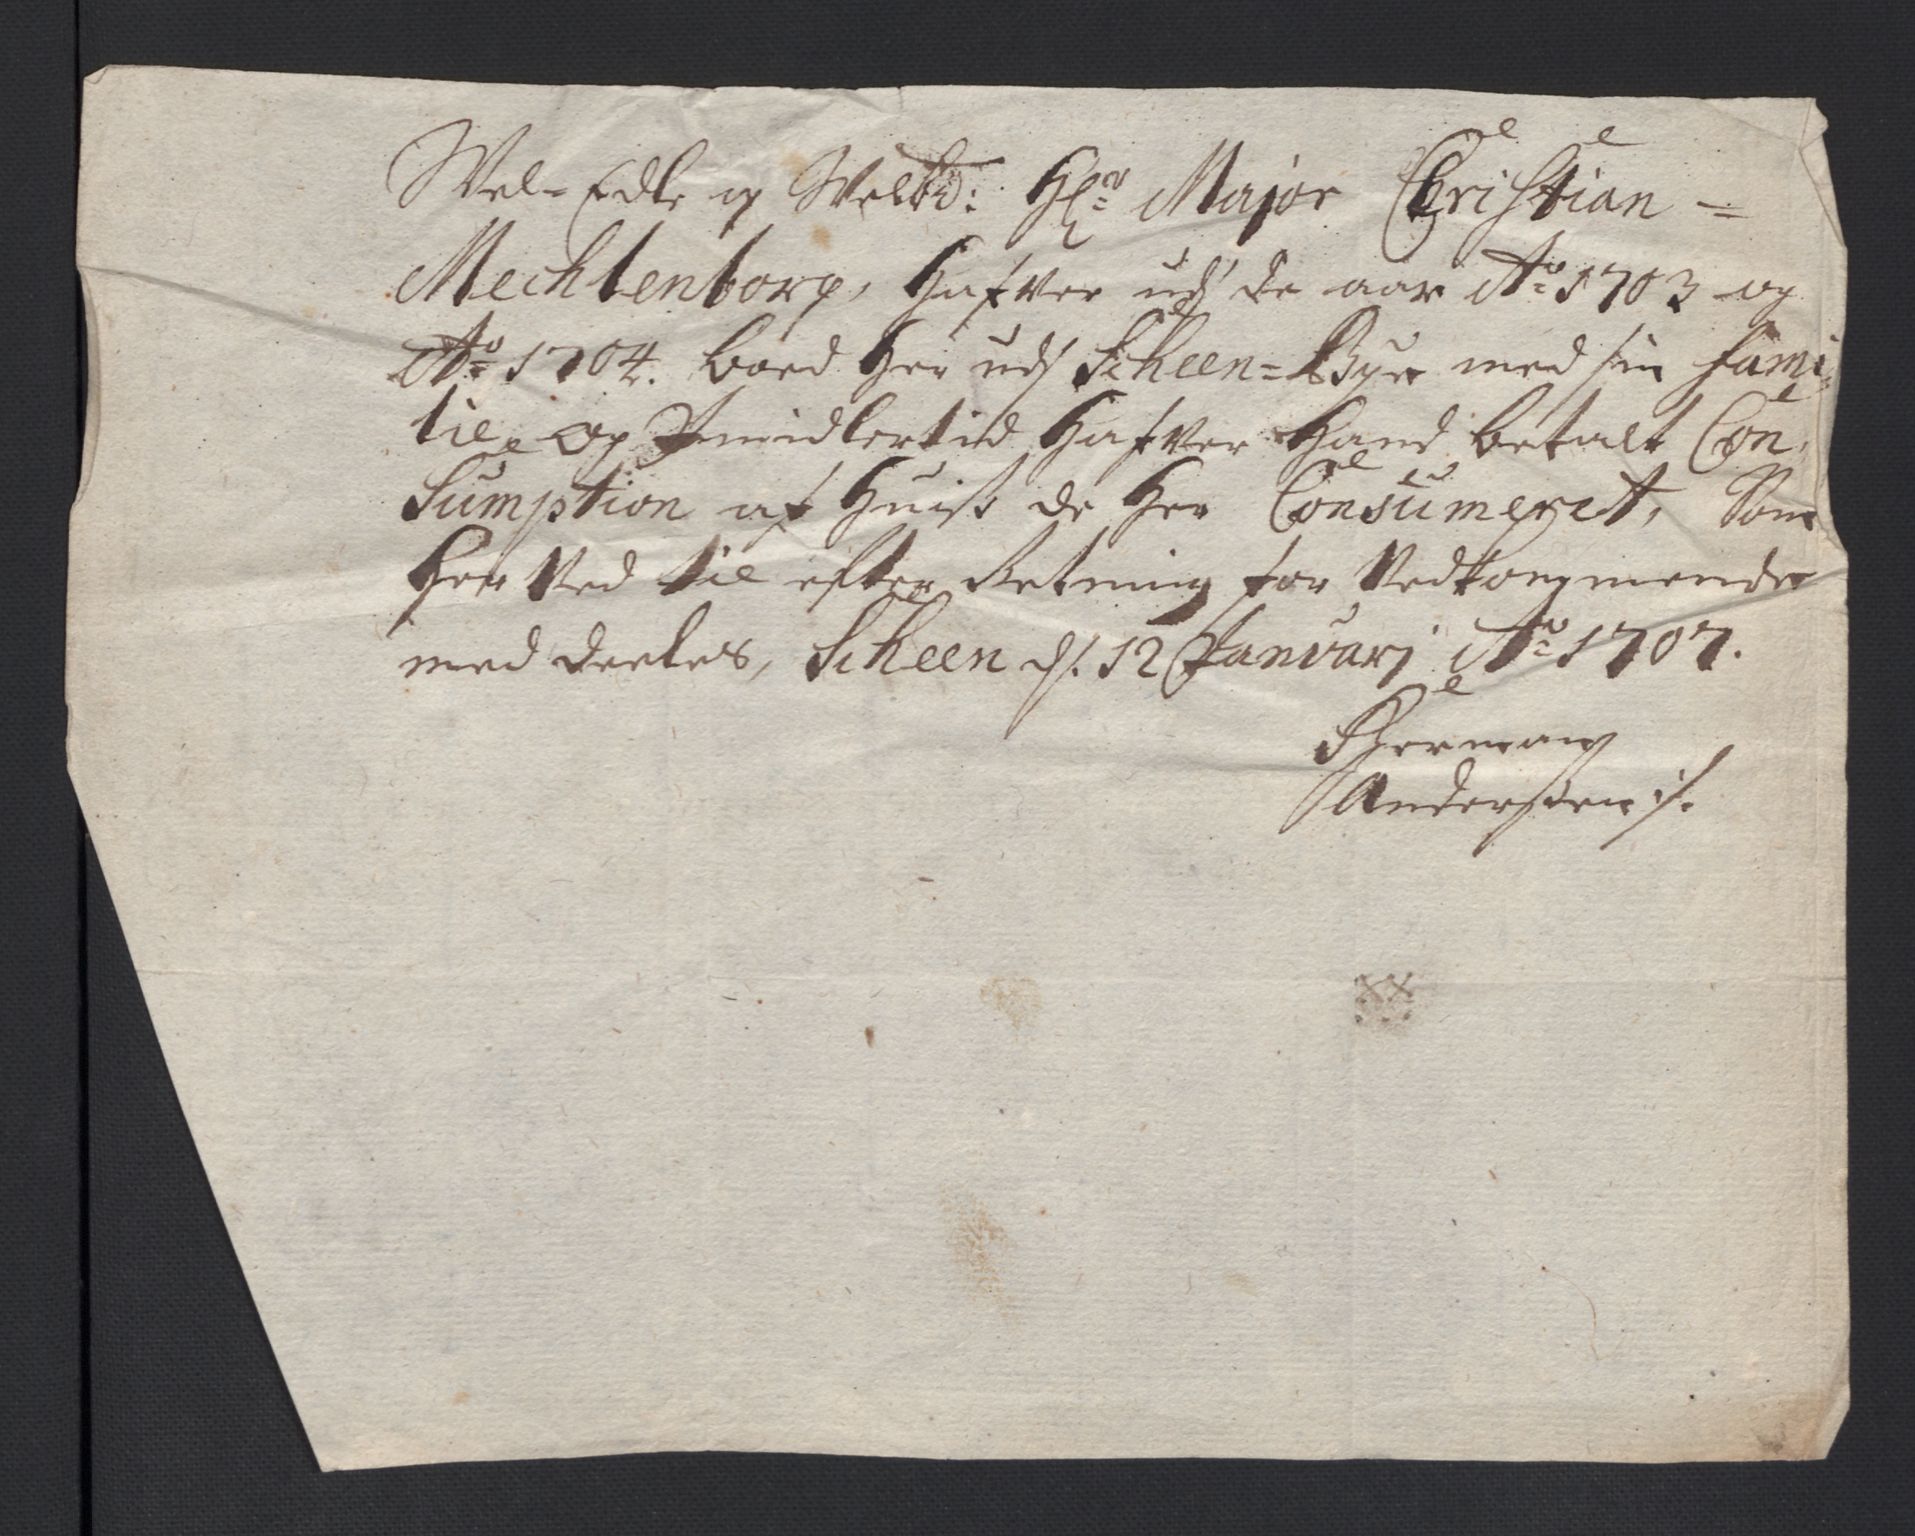 Wel-Edle og Welbd: Hr: Major Christian =
Mechlenborg, Hafver udj de aar Ao: 1703 og
Ao: 1704. boed her udj Scheen=Bye med sin fami-
lie, Og Imidlertid Hafver Hand betalt Con-
Sumption af Huis de her Consumerit, Som
her Ved til efter Retning for Vedkommende
med deeles, Scheen d. 12 Januarj Ao: 1707.
Herman
Anderssen